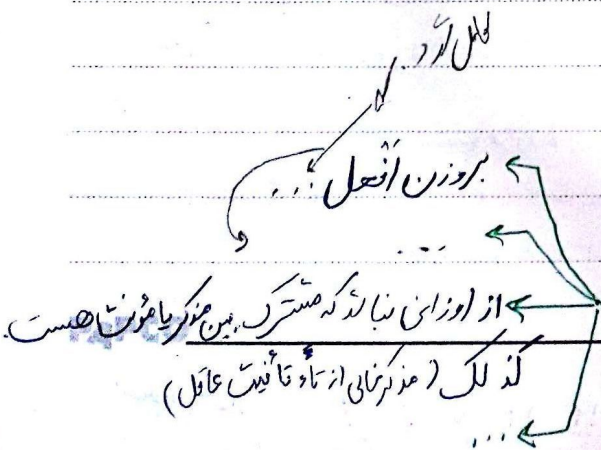 کامل گردد.
بروزن أفعل ...
...
از اوزانی نباشد که مشترک بین مذکر یا مؤنث هست.
کذلک (مذکر خالی از تاء تأنیث عاقل)
...